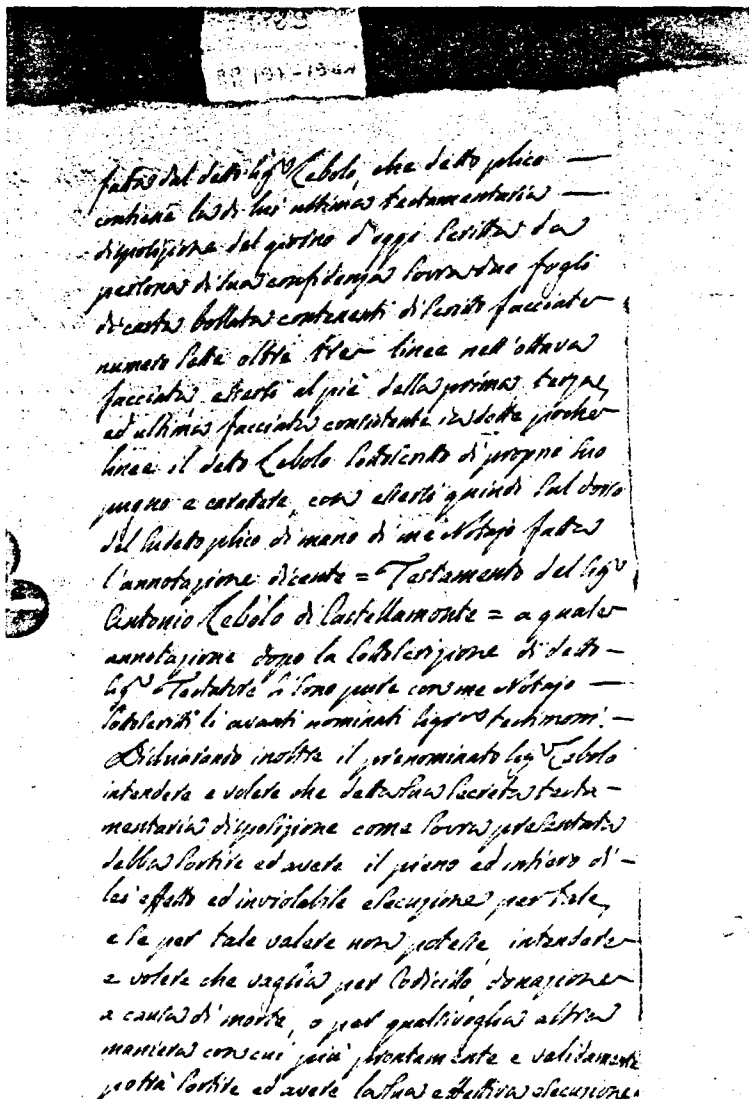 fatta dal detto Sig.r Lebolo, che detto plico —
contiene la di lui ultima testamentaria —
disposizione del giorno d'oggi scritta da
persona di sua confidenza sovra due fogli
di carta bollata contenenti di scritto facciate
numero sette oltre tre linee nell'ottava
facciata, essersi al piè della prima, terza,
ed ultima facciata consistente in dette poche
linee il detto Lebolo sottoscritto di proprio suo
pugno e carattere, con essersi quindi sul dorso
del sudetto plico di mano di me Notajo fatta
l'annotazione dicente = Testamento del Sig.r
Antonio Lebolo di Castellamonte = a quale
annotazione dopo la sottoscrizione di detto —
Sig.r Testatore si sono pure con me Notajo —
sottoscritti li avanti nominati Sig.ri testimoni. —
Dichiarando inoltre il prenominato Sig.r Lebolo
intendere e volere che detta sua secreta testa -
mentaria disposizione come sovra presentata
debba sortire ed avere il pieno ed intiero di -
lei effetto ed inviolabile esecuzione per tale,
e se per tale valere non potesse, intendere
e volere che vaglia per Codicillo, donazione
a causa di morte, o per qualsivoglia altra
maniera con cui più prontamente e validamente
potrà sortire ed avere la sua effettiva esecuzione